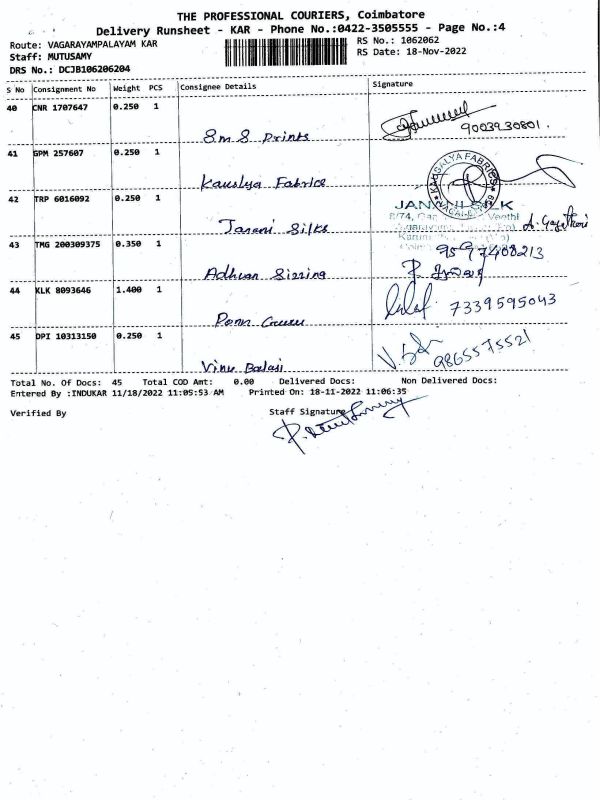 THE PROFESSIONAL COURIERS, Coimbatore
Delivery Runsheet - KAR - Phone No.:0422-3505555 - Page No.:4
Route: VAGARAYAMPALAYAM KAR
RS No.: 1062062
Staff: MUTUSAMY
RS Date: 18-Nov-2022
DRS No.: DCJB106206204
S No Consignment No Weight PCS Consignee Details Signature
40 CNR 1707647 0.250 1
SMS Prints
9003930801.
41 GPM 257607 0.250 1
Kauslya Fabrice
KAUSALYA FABRICS
42 TRP 6016092 0.250 1
Janani Silks
SILK
8/74, Veethi
A. Gayathori
43 TMG 200309375 0.350 1
9597408213
Adhvan Sizzing
44 KLK 8093646 1.400 1
7339595043
45 DPI 10313150 0.250 1
9865575521
Vinu Balaji
Total No. Of Docs: 45 Total COD Amt: 0.00 Delivered Docs: Non Delivered Docs:
Entered By :INDUKAR 11/18/2022 11:05:53 AM Printed On: 18-11-2022 11:06:35
Verified By Staff Signature